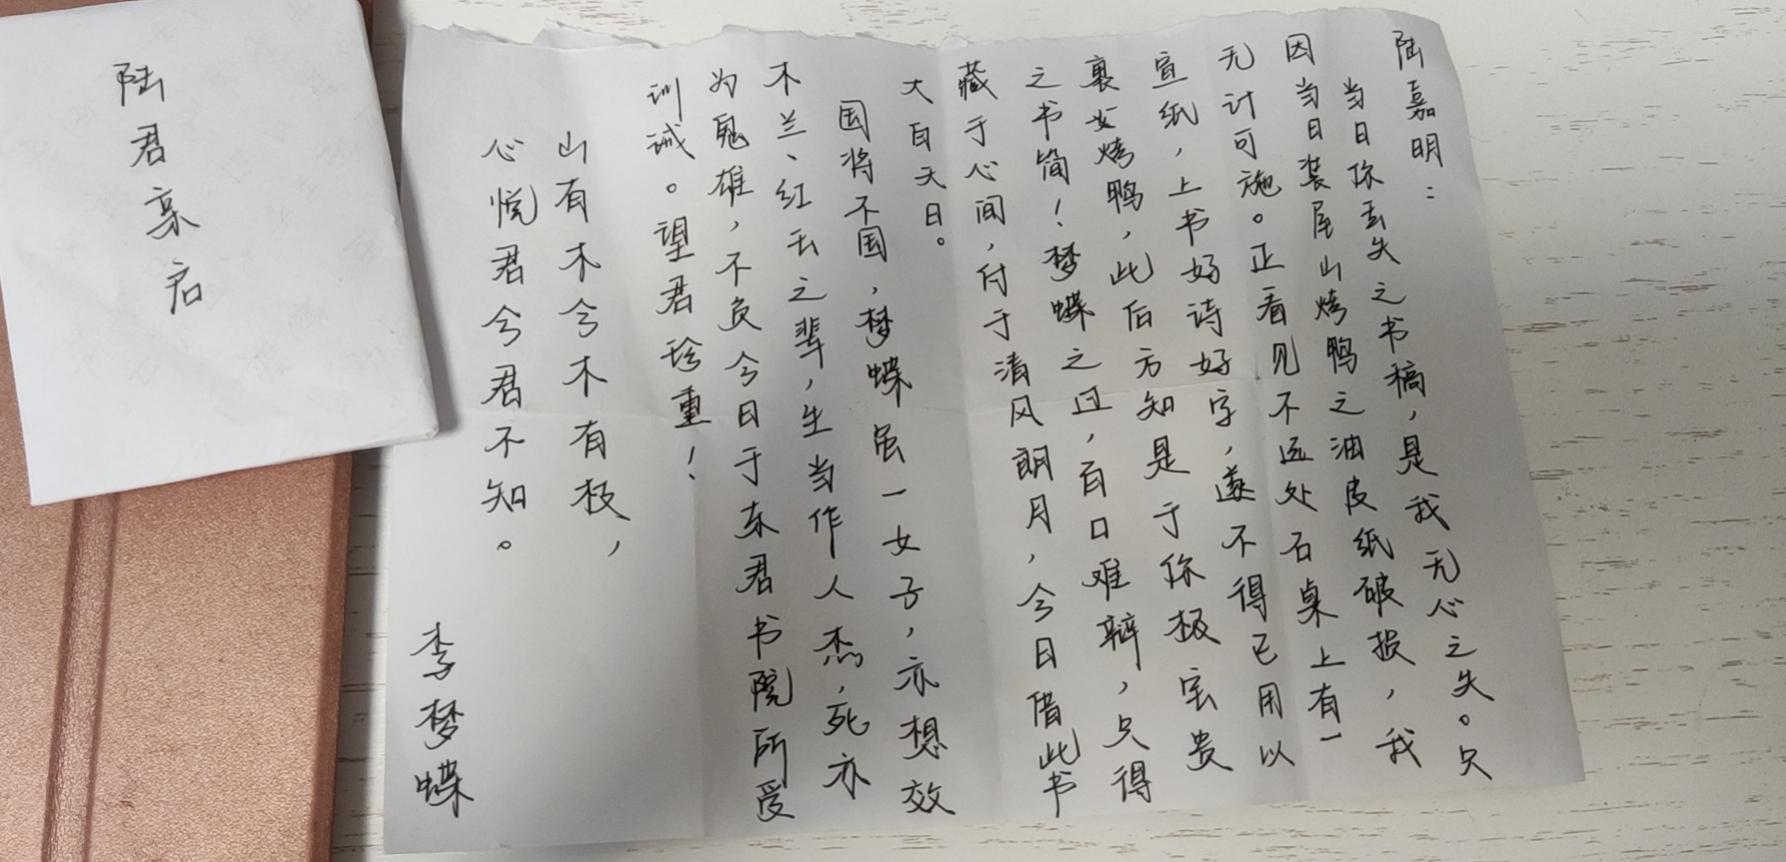 陆嘉明：
当日你丢失之书稿，是我无心之失。只
因当日装尾山烤鸭之油皮纸破损，我
无计可施。正看见不远处石桌上有一
宣纸，上书好诗好字，遂不得已用以
裹烤鸭，此后方知是于你极宝贵
之书简！梦蝶之过，百口难辩，只得
藏于心间，付于清风朗月，今日借此书
大白天日。
国将不国，梦蝶虽一女子，亦想效
木兰、红玉之辈，生当作人杰，死亦
为鬼雄，不负今日于东君书院所受
训诫。望君珍重！
山有木兮木有枝，
心悦君兮君不知。
李梦蝶
陆君亲启